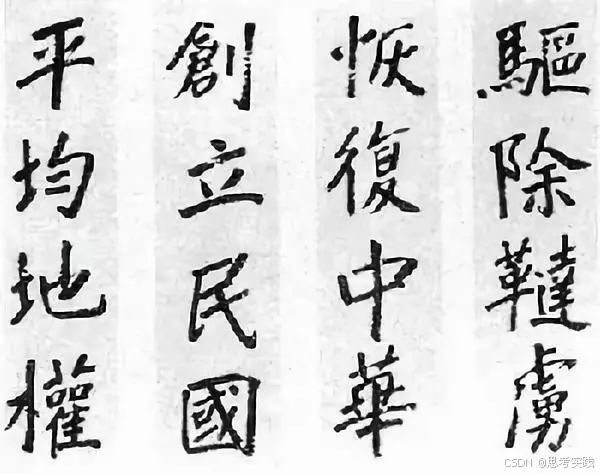 驅除韃虜
恢復中華
創立民國
平均地權
CSDN @思考实践